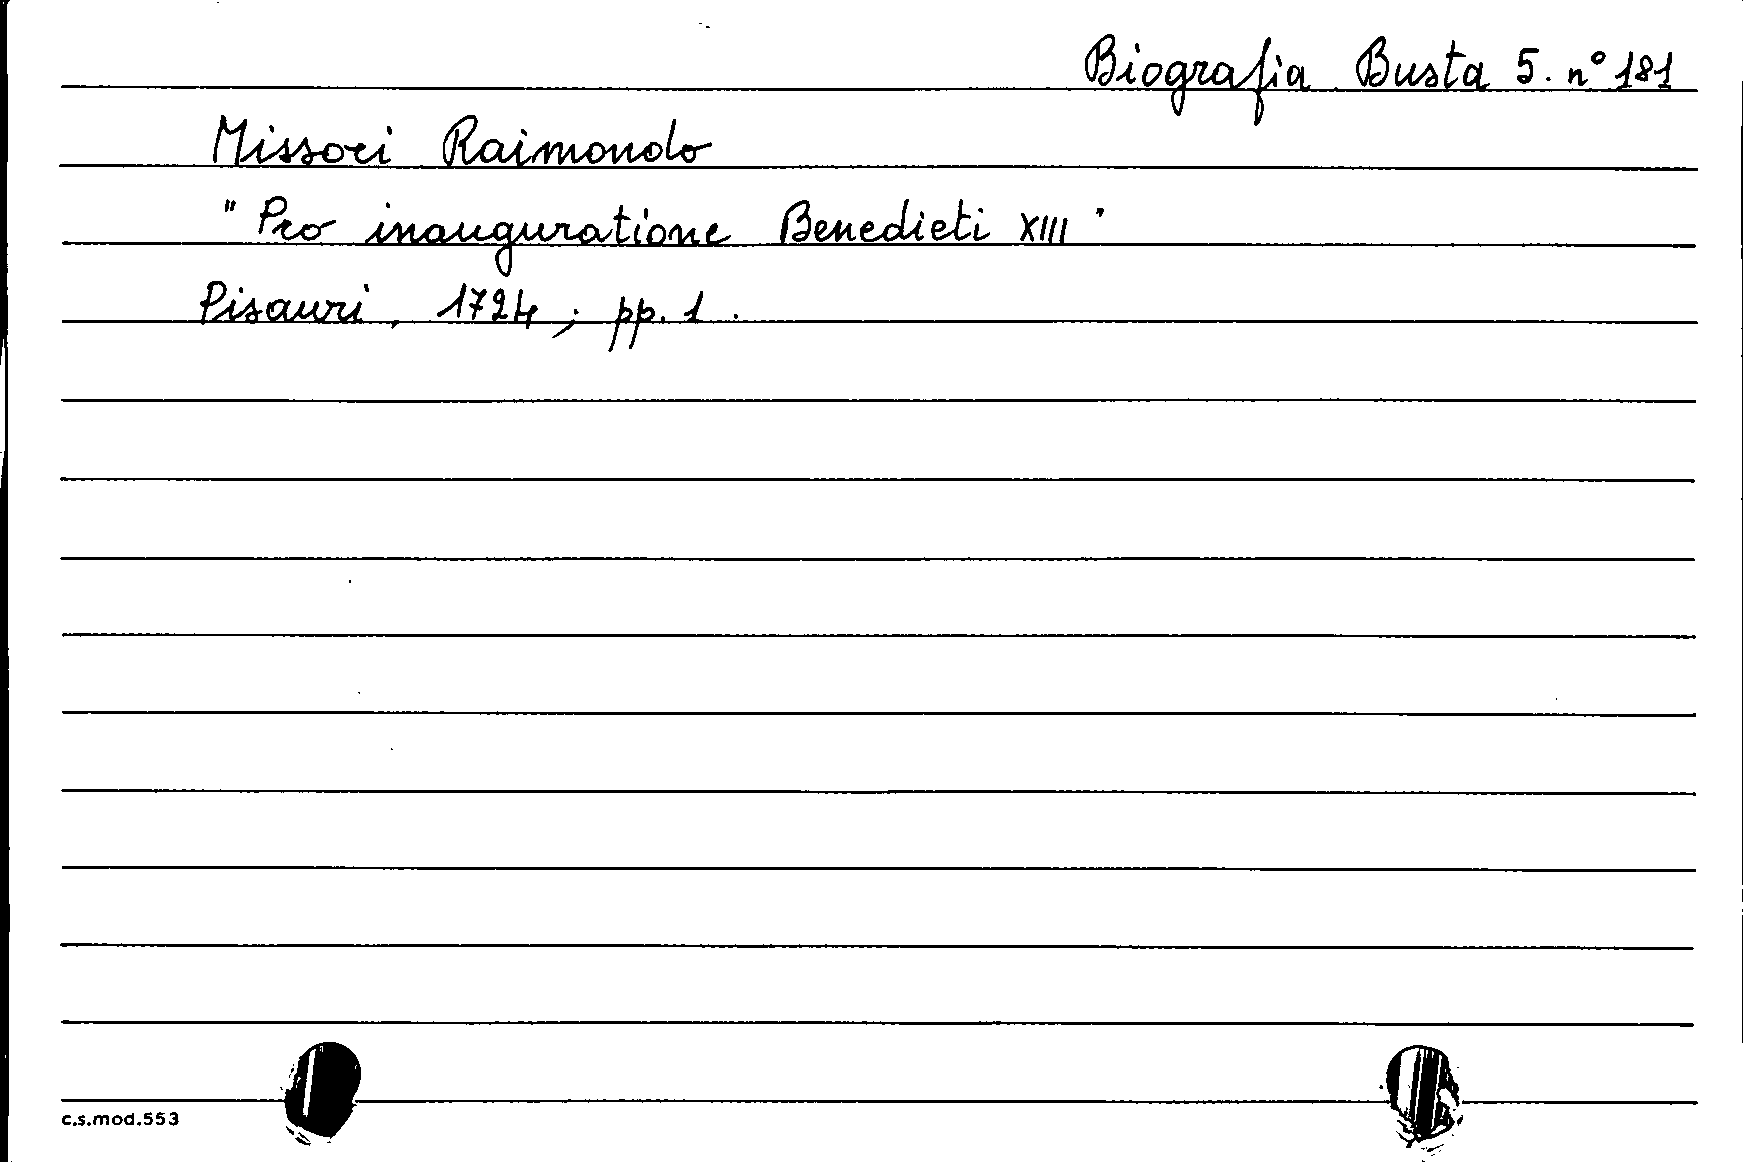 Biografia Busta 5. n° 181
Missori Raimondo
"Pro inauguratione Benedicti XIII"
Pisauri, 1724; pp. 1.
c.s.mod.553